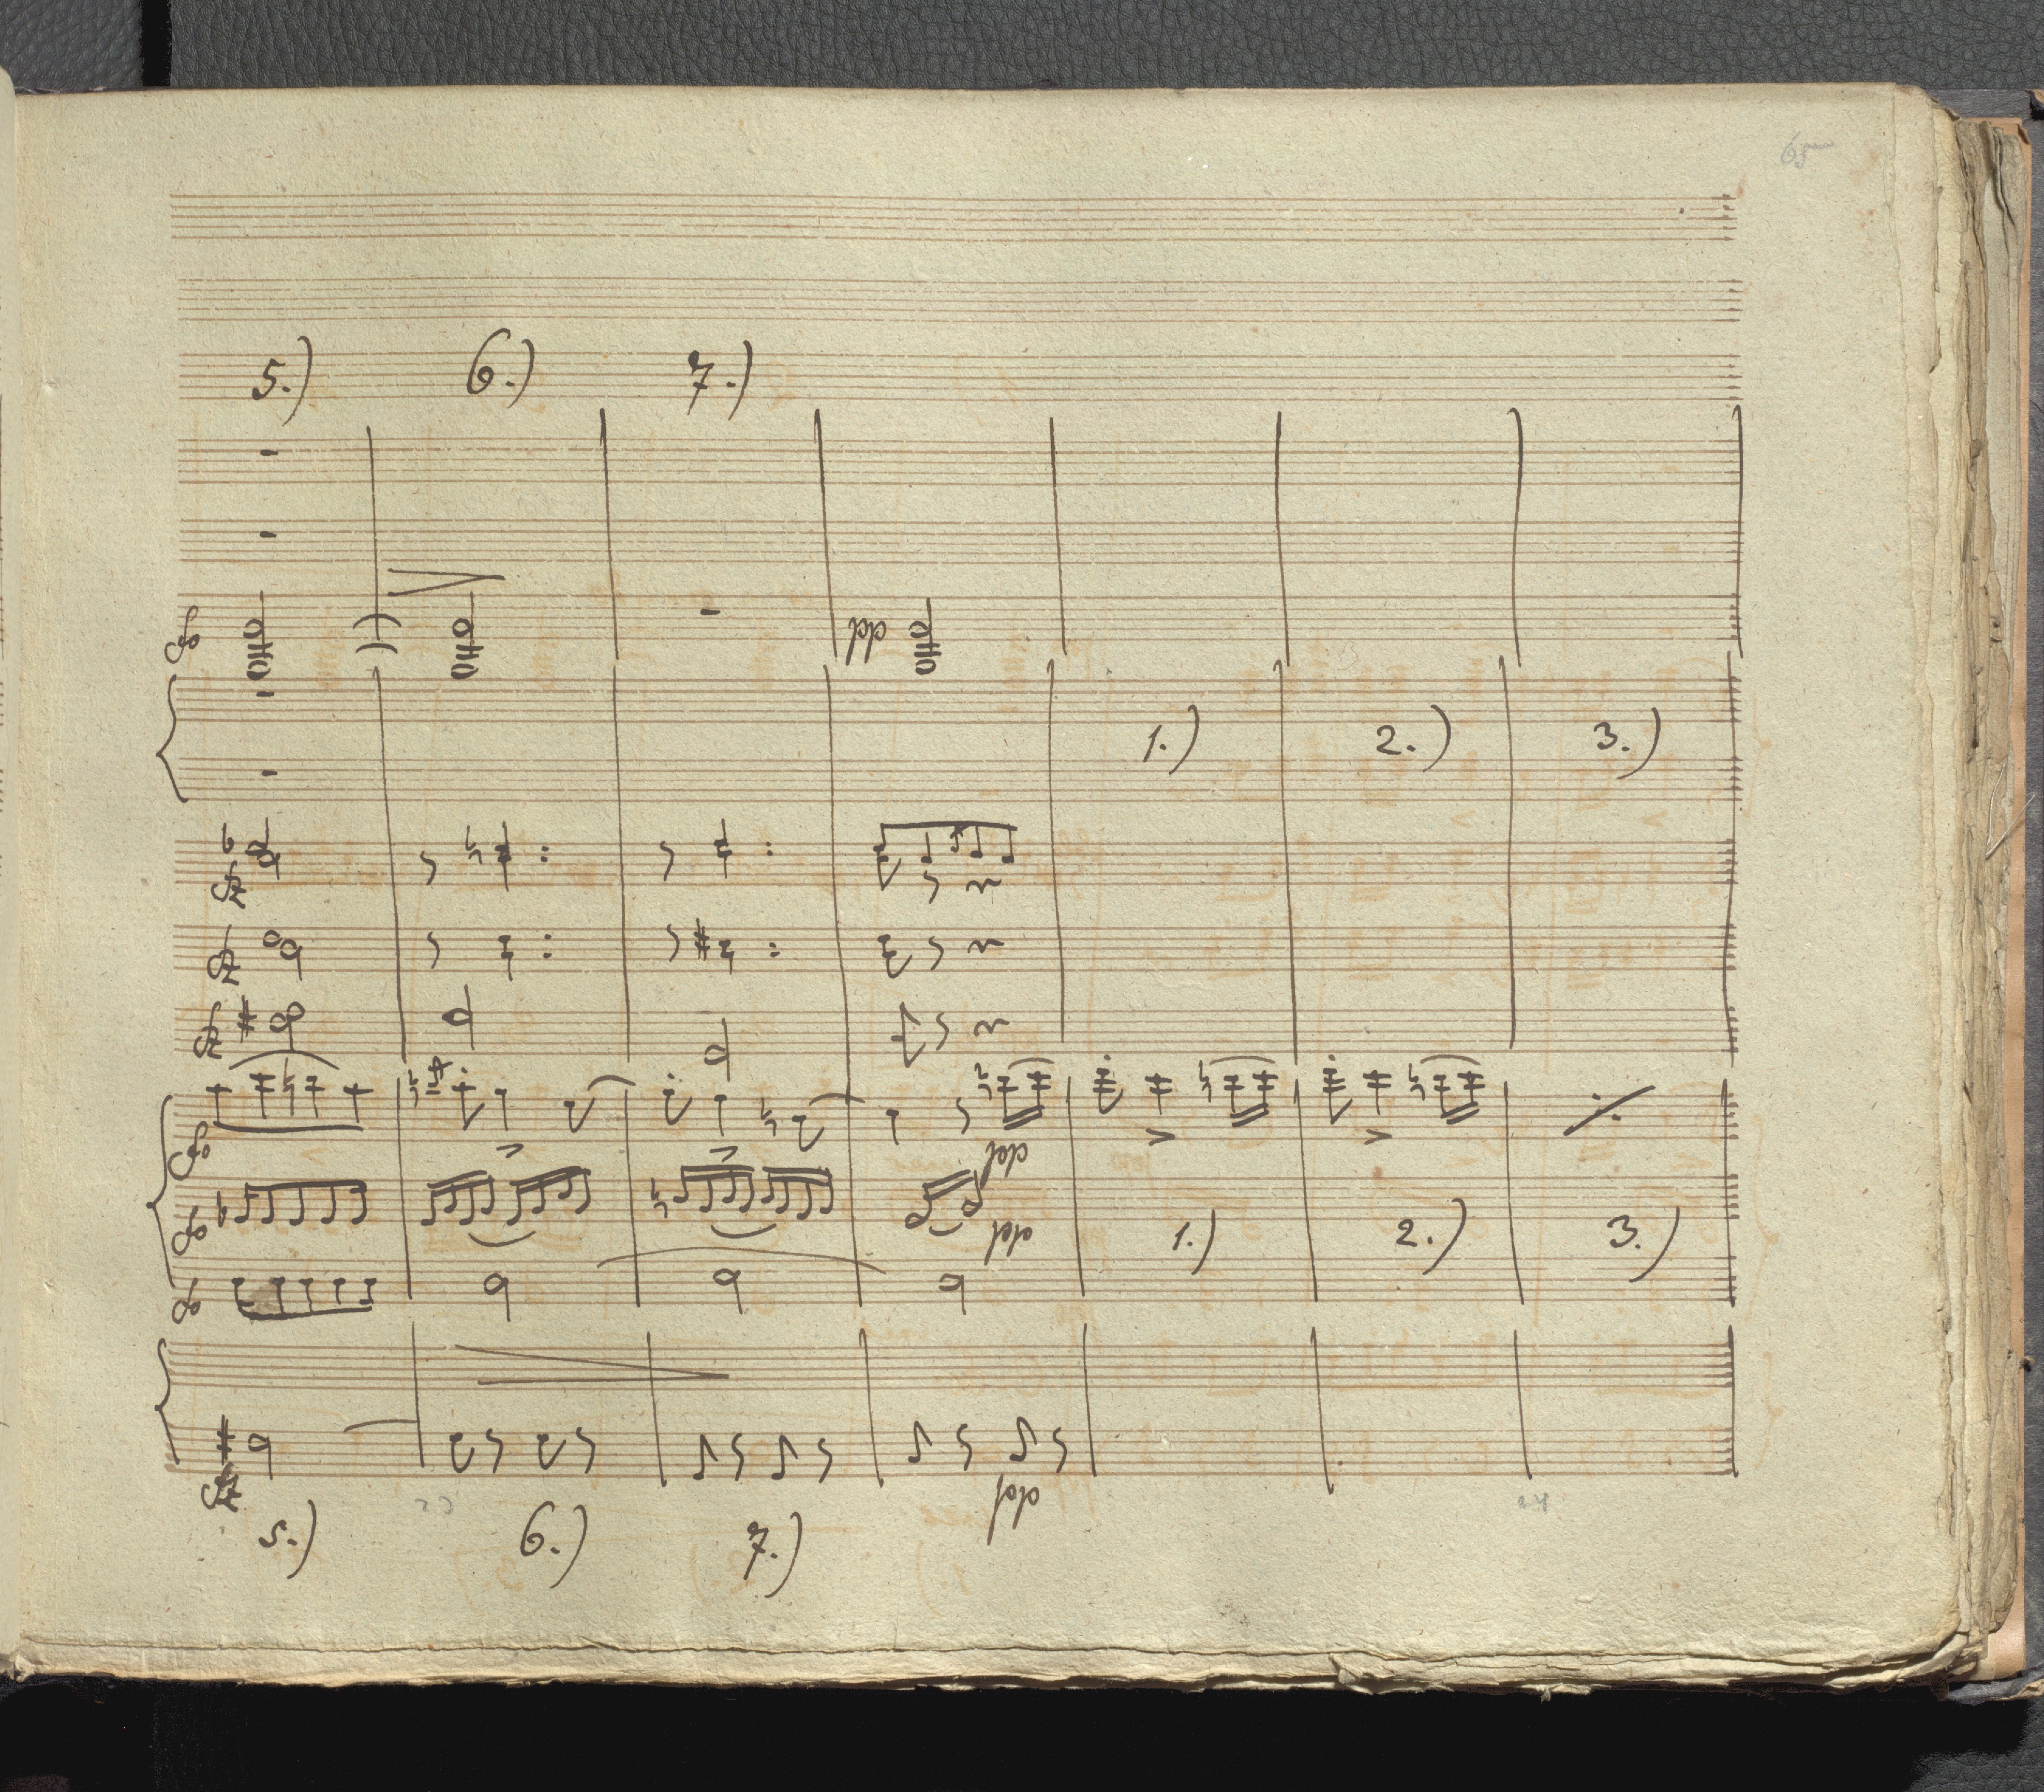 65
5.) 6.) 7.)
pp
1.) 2.) 3.)
fz
fz
fz
pp
pp
1.) 2.) 3.)
fz
pp
5.) 6.) 7.)